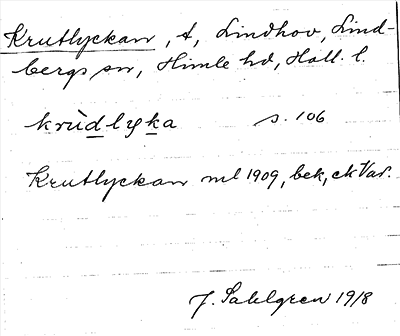 Krutlyckan, t, Lindhov, Lind-
bergs sn, Himle hd, Hall. l.
krùdlyka s. 106
Krutlyckan ml 1909, bek, ck Var.
J. Sahlgren 1918